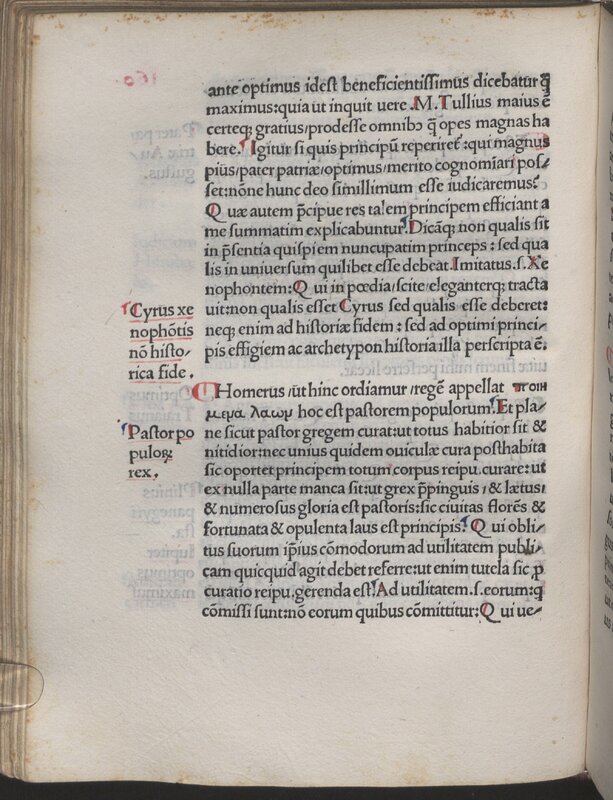 160
ante optimus idest beneficientissimus dicebatur q̄
maximus: quia ut inquit uere .M. Tullius maius ē
certeq; gratius/prodesse omnibꝰ q̄ opes magnas ha
bere. Igitur si quis principū reperiret̃: qui magnus
pius/pater patriæ/optimus/merito cognomīari pos⸗
set: nōne hunc deo simillimum esse iudicaremus?
Quæ autem p̄cipue res talem principem efficiant a
me summatim explicabuntur. Dicāq; non qualis sit
in p̄sentia quispiem nuncupatim princeps: sed qua
lis in uniuersum quilibet esse debeat. Imitatus .s. Xe
nophontem: Qui in pœdia/scite/eleganterq; tracta
uit: non qualis esset Cyrus sed qualis esse deberet:
neq; enim ad historiæ fidem: sed ad optimi princi⸗
pis effigiem ac archetypon historia illa perscripta ē.
Cyrus xe
nophōtis
nō histo⸗
rica fide.
Homerus/ut hinc ordiamur/regē appellat ποιη
μενα λαων hoc est pastorem populorum. Et pla⸗
ne sicut pastor gregem curat: ut totus habitior sit &
nitidior: nec unius quidem ouiculæ cura posthabita
sic oportet principem totum corpus reipu. curare: ut
ex nulla parte manca sit: ut grex p̄pinguis/& lætus/
& numerosus gloria est pastoris: sic ciuitas florēs &
fortunata & opulenta laus est principis. Qui obli⸗
tus suorum ip̄ius cōmodorum ad utilitatem publi⸗
cam quicquid agit debet referre: ut enim tutela sic ꝓ
curatio reipu. gerenda est. Ad utilitatem .s. eorum: q
cōmissi sunt: nō eorum quibus cōmittitur: Qui ue⸗
Pastor po
puloꝝ
rex.